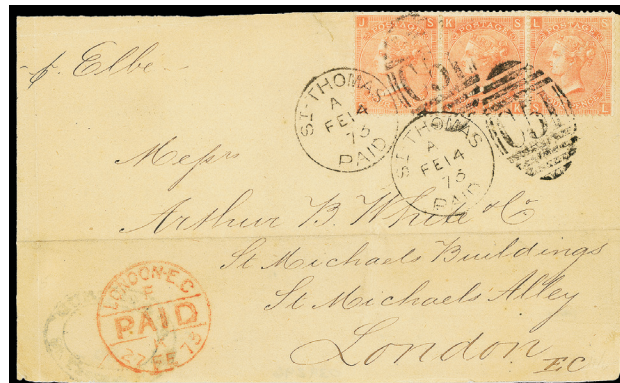 J S K S L S
POSTAGE
p. Elbe
C51 C51
S L
ST-THOMAS
A
FE14
75
PAID
ST-THOMAS
A
FE14
75
PAID
Messrs
Arthur B. White & Co
St Michaels Buildings
St Michaels Alley
London
EC
LONDON-E.C
F
PAID
27 FE 75